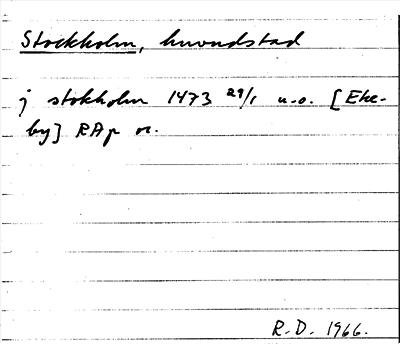 Stockholm, huvudstad
j stokholm 1473 29/1 u.o. [Eke-
by] RAp or.
R.D. 1966.